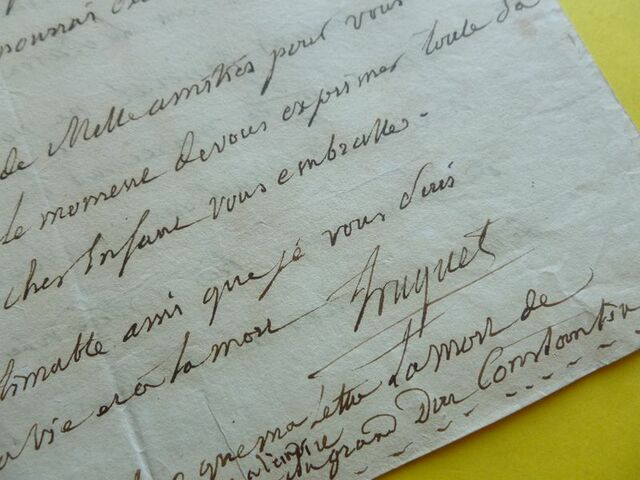 pourrai
de Mille amitiés pour vous
le moment de vous exprimer toute sa
cher Enfant vous embrasse.
timable ami que je vous suis
la vie et à la mort Truguet
que ma lettre la mort de
du grand Duc Constantin